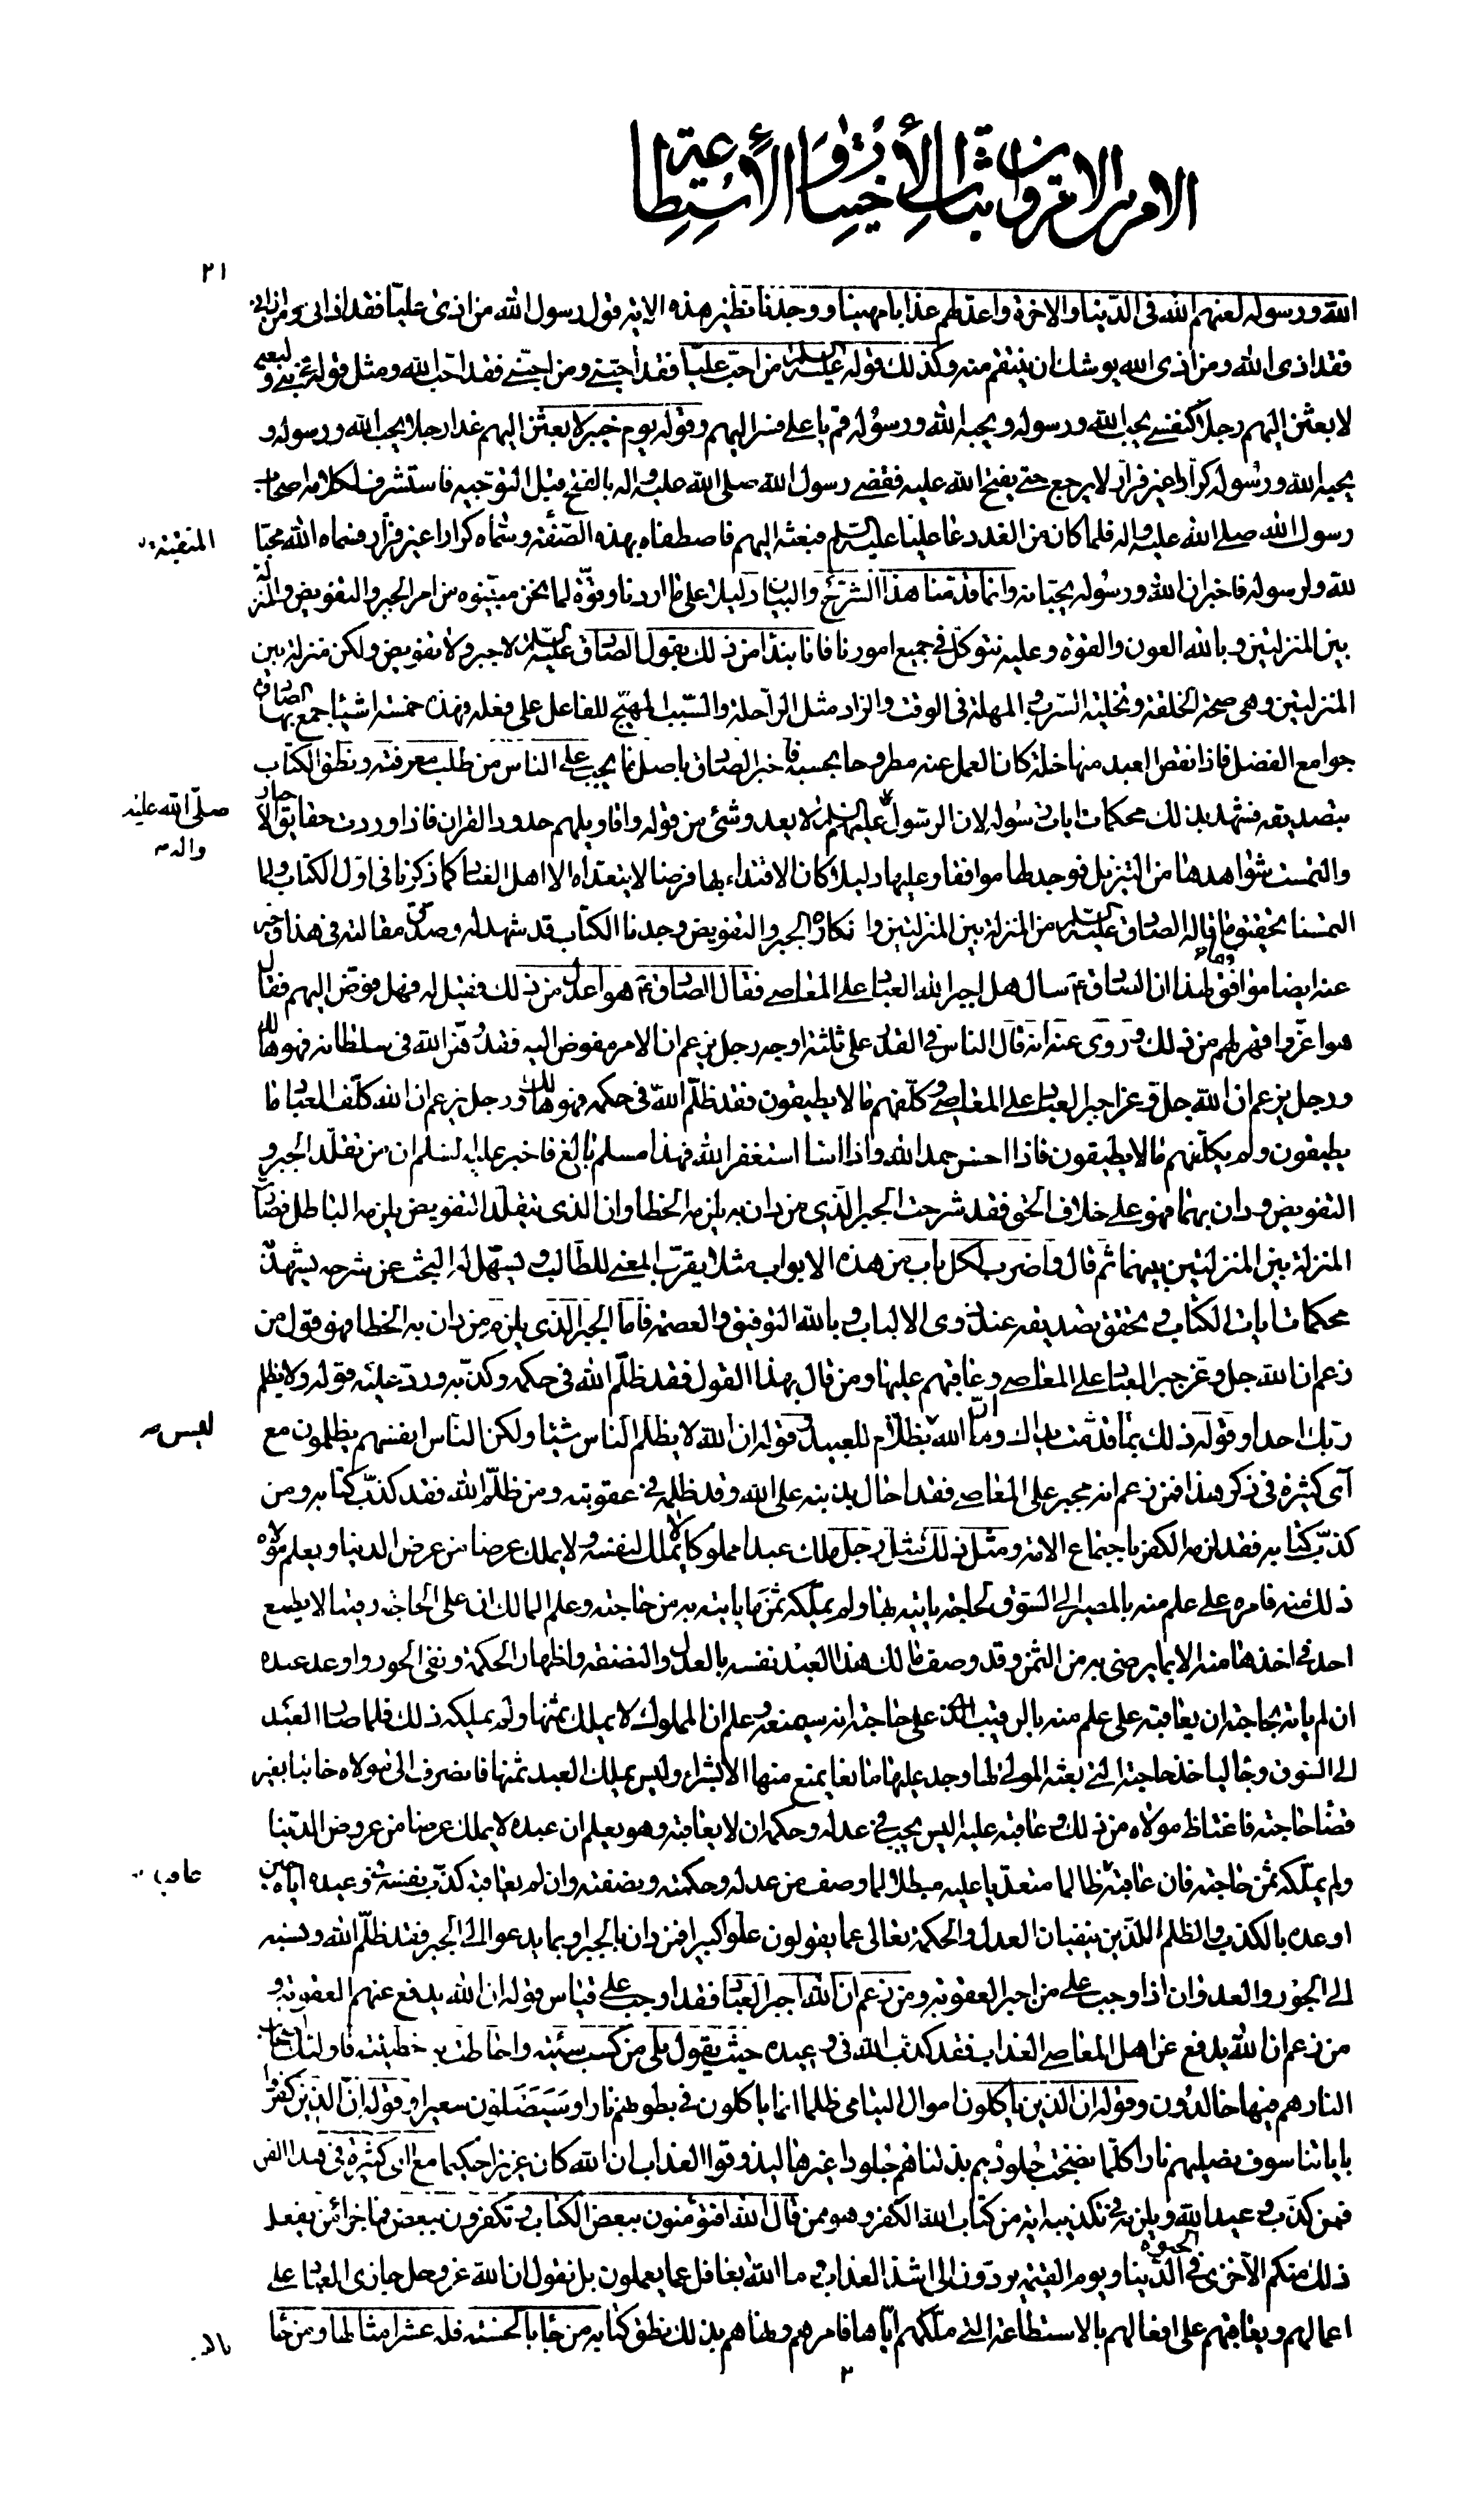 الامر بين الامرين و اثبات الأختيار و الأستطاعة
٢١
الله ورسوله لعنهم الله فى الدّنيا والاخرة واعدّ لهم عذابا مهينا ووجدنا نظير هذه الاية قول رسول الله من اذى عليّا فقد اذانى ومن اذانى
فقد اذى الله ومن اذى الله يوشك ان ينتقم منه وكذلك قوله عليه السلم من احبّ عليّا فقد احبّنى ومن احبّنى فقد احبّ الله ومثل قوله فى بنى وليعه
لابعثن اليهم رجلا كنفسى يحب الله ورسوله ويحبه الله ورسوله قم يا على فسر اليهم وقوله يوم خيبر لابعثن اليهم غدا رجلا يحب الله ورسوله و
يحبه الله ورسوله كرّارا غير فرّار لا يرجع حتى يفتح الله عليه فقضى رسول الله صلى الله عليه واله بالفتح قبل التوجيه فاستشرف لكلامه اصحاب
رسول الله صلى الله عليه واله فلما كان من الغد دعا عليّا عليه السلم فبعثه اليهم فاصطفاه بهذه الصّفة وسمّاه كرارا غير فرّار فسماه الله محبّا
المنقبة
لله ولرسوله فاخبر ان الله ورسوله يحبّانه وانما قدّمنا هذا الشرّح والبيان دليلا على ما اردنا وقوّة لما نحن مبيّنوه من امر الجبر والتفويض والمنزلة
بين المنزلتين وبالله العون والقوة وعليه نتوكّل فى جميع امورنا فانا نبدأ من ذلك بقول الصّادق عليه السلم لا جبر ولا تفويض ولكن منزلة بين
المنزلتين وهى صحة الخلقة وتخلية السّرب والمهلة فى الوقت والزاد مثل الراحلة والسّبب المهيّج للفاعل على فعله فهذه خمسة اشياء جمع بها الصّادق
جوامع الفضل فاذا نقص العبد منها خلة كان العمل عنه مطروحا بحسبه فاخبر الصّادق باصل ما يجب على الناس من طلب معرفته ونطق الكتاب
بتصديقه فشهد بذلك محكمات ايات رسوله لان الرسول عليهم السلم لا يعدو شئ من قوله واقاويلهم حدود القران فاذا وردت حقايق الاخبار
صلّى الله عليه
واله
والتمست شواهدها من التنزيل فوجد لها موافقا وعليها دليلا كان الاقتداء بها فرضا لا يتعدّاه الا اهل العناد كما ذكرنا فى اوّل الكتاب ولما
التمسنا تحقيق ما قاله الصّادق عليه السلم من المنزلة بين المنزلتين وانكاره الجبر والتفويض وجدنا الكتاب قد شهد له وصدّق مقالته فى هذا وخبر
عنه ايضا موافق لهذا ان الصّادق ع سال هل اجبر الله العباد على المعاصى فقال الصّادق ع هو اعدل من ذلك فقيل له فهل فوّض اليهم فقال
هو اعزّ واقهر لهم من ذلك وروى عنه انه قال الناس فى القدر على ثلثة اوجه رجل يزعم ان الامر مفوض اليه فقد وهّن الله فى سلطانه فهو هالك
ورجل يزعم ان الله جل وعز اجبر العباد على المعاصى وكلّفهم ما لا يطيقون فقد ظلّم الله فى حكمه فهو هالك ورجل يزعم ان الله كلّف العباد ما
يطيقون ولم يكلّفهم ما لا يطيقون فاذا احسن حمد الله واذا اسا استغفر الله فهذا مسلم بالغ فاخبر عليه السلم ان من تقلّد الجبر و
التفويض ودان بهما فهو على خلاف الحق فقد شرحت الجبر الّذى من دان به يلزمه الخطا وان الذى يتقلّد التفويض يلزمه الباطل فصارت
المنزلة بين المنزلتين بينهما ثم قال واضرب لكل باب من هذه الابواب مثلا يقرّب المعنى للطالب ويسهّل له البحث عن شرحه يشهد به
محكمات ايات الكتاب ويحقق تصديقه عند ذوى الالباب وبالله التوفيق والعصمة فامّا الجبر الّذى يلزم من دان به الخطا فهو قول من
زعم ان الله جل وعزّ جبر العباد على المعاصى وعاقبهم عليها ومن قال بهذا القول فقد ظلّم الله فى حكمه وكذّبه وردّ عليه قوله ولا يظلم
ربّك احدا وقوله ذلك بما قدّمت يداك وانّ الله ليس بظلّام للعبيد وقوله ان الله لا يظلم الناس شيئا ولكن النّاس انفسهم يظلمون مع
ليس
آى كثيرة فى ذكر هذا فمن زعم انه مجبر على المعاصى فقد احال بذنبه على الله وقد ظلمه فى عقوبته ومن ظلّم الله فقد كذّب كتابه ومن
كذّب كتابه فقد لزمه الكفر باجتماع الامة ومثل ذلك مثل رجل ملك عبدا مملوكا لا يملك نفسه ولا يملك عرضا من عرض الدنيا ويعلم مولاه
ذلك منه فامره على علم منه بالمصير الى السّوق لحاجة ياتيه بها ولم يملّكه ثمن ما ياتيه به من حاجته وعلم المالك ان على الحاجة رقيبا لا يطمع
احد فى اخذها منه الا بما يرضى به من الثمن وقد وصف مالك هذا العبد نفسه بالعدل والنصفة واظهار الحكمة ونفى الجور واوعد عبده
ان لم ياته بحاجته ان يعاقبه على علم منه بالرقيب الذى على حاجته انه سيمنعه وعلم ان المملوك لا يملك ثمنها ولم يملكه ذلك فلما صار العبد
الى السّوق وجا لياخذ حاجته التى بعثه المولى لها وجد عليها مانعا يمنع منها الا بشراء وليس يملك العبد ثمنها فانصرف الى مولاه خائبا بغير
قضاء حاجته فاغتاظ مولاه من ذلك وعاقبه عليه اليس يجب فى عدله وحكمه ان لا يعاقبه وهو يعلم ان عبده لا يملك عرضا من عروض الدّنيا
ولم يملّكه ثمن حاجته فان عاقبه ظالما متعدّيا عليه مبطلا لما وصف من عدله وحكمته ونصفته وان لم يعاقبه كذّب نفسه فى وعيده اياه حين
عاقبه
اوعده بالكذب والظلم اللذين ينفيان العدل والحكمة تعالى عما يقولون علوّا كبيرا فمن دان بالجبر او بما يدعو الى الجبر فقد ظلّم الله ونسبه
الى الجور والعدوان اذ اوجب على من اجبر العقوبة ومن زعم ان الله اجبر العباد فقد اوجب على قياس قوله ان الله يدفع عنهم العقوبة و
من زعم ان الله يدفع عن اهل المعاصى العذاب فقد كذّب الله فى وعيده حيث يقول بلى من كسب سيّئة واحاطت به خطيئته فاولئك اصحاب
النار هم فيها خالدون وقوله ان الذين ياكلون اموال اليتامى ظلما انما ياكلون فى بطونهم نارا وسيصلون سعيرا وقوله انّ الّذين كفروا
باياتنا سوف نصليهم نارا كلّما نضجت جلودهم بدّلناهم جلودا غيرها ليذوقوا العذاب ان الله كان عزيزا حكيما مع اى كثيرة فى هذا الفن
فمن كذّب وعيد الله ويلزمه فى تكذيبه اية من كتاب الله الكفر وهو ممن قال الله افتؤمنون ببعض الكتاب وتكفرون ببعض فما جزاء من يفعل
ذلك منكم الا خزى فى الحيوة الدّنيا ويوم القيمة يردّون الى اشدّ العذاب وما الله بغافل عما يعملون بل نقول ان الله عز وجل جازى العباد على
اعمالهم ويعاقبهم على افعالهم بالاستطاعة التى ملّكهم ايّاها فامرهم ونهاهم بذلك نطق كتابه من جا بالحسنة فله عشر امثالها ومن جا
٢